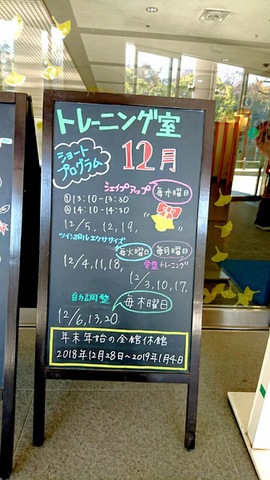 トレーニング室
ショート
プログラム
12月
シェイプアップ 毎水曜日
①13:10-13:30
②14:10-14:30
12/5, 12, 19,
ツインボールエクササイズ
毎火曜日 毎月曜日
12/4,11,18, 骨盤トレーニング
12/3,10,17,
自力調整
毎木曜日
12/6,13,20
年末年始の全館休館
2018年12月28日～2019年1月4日